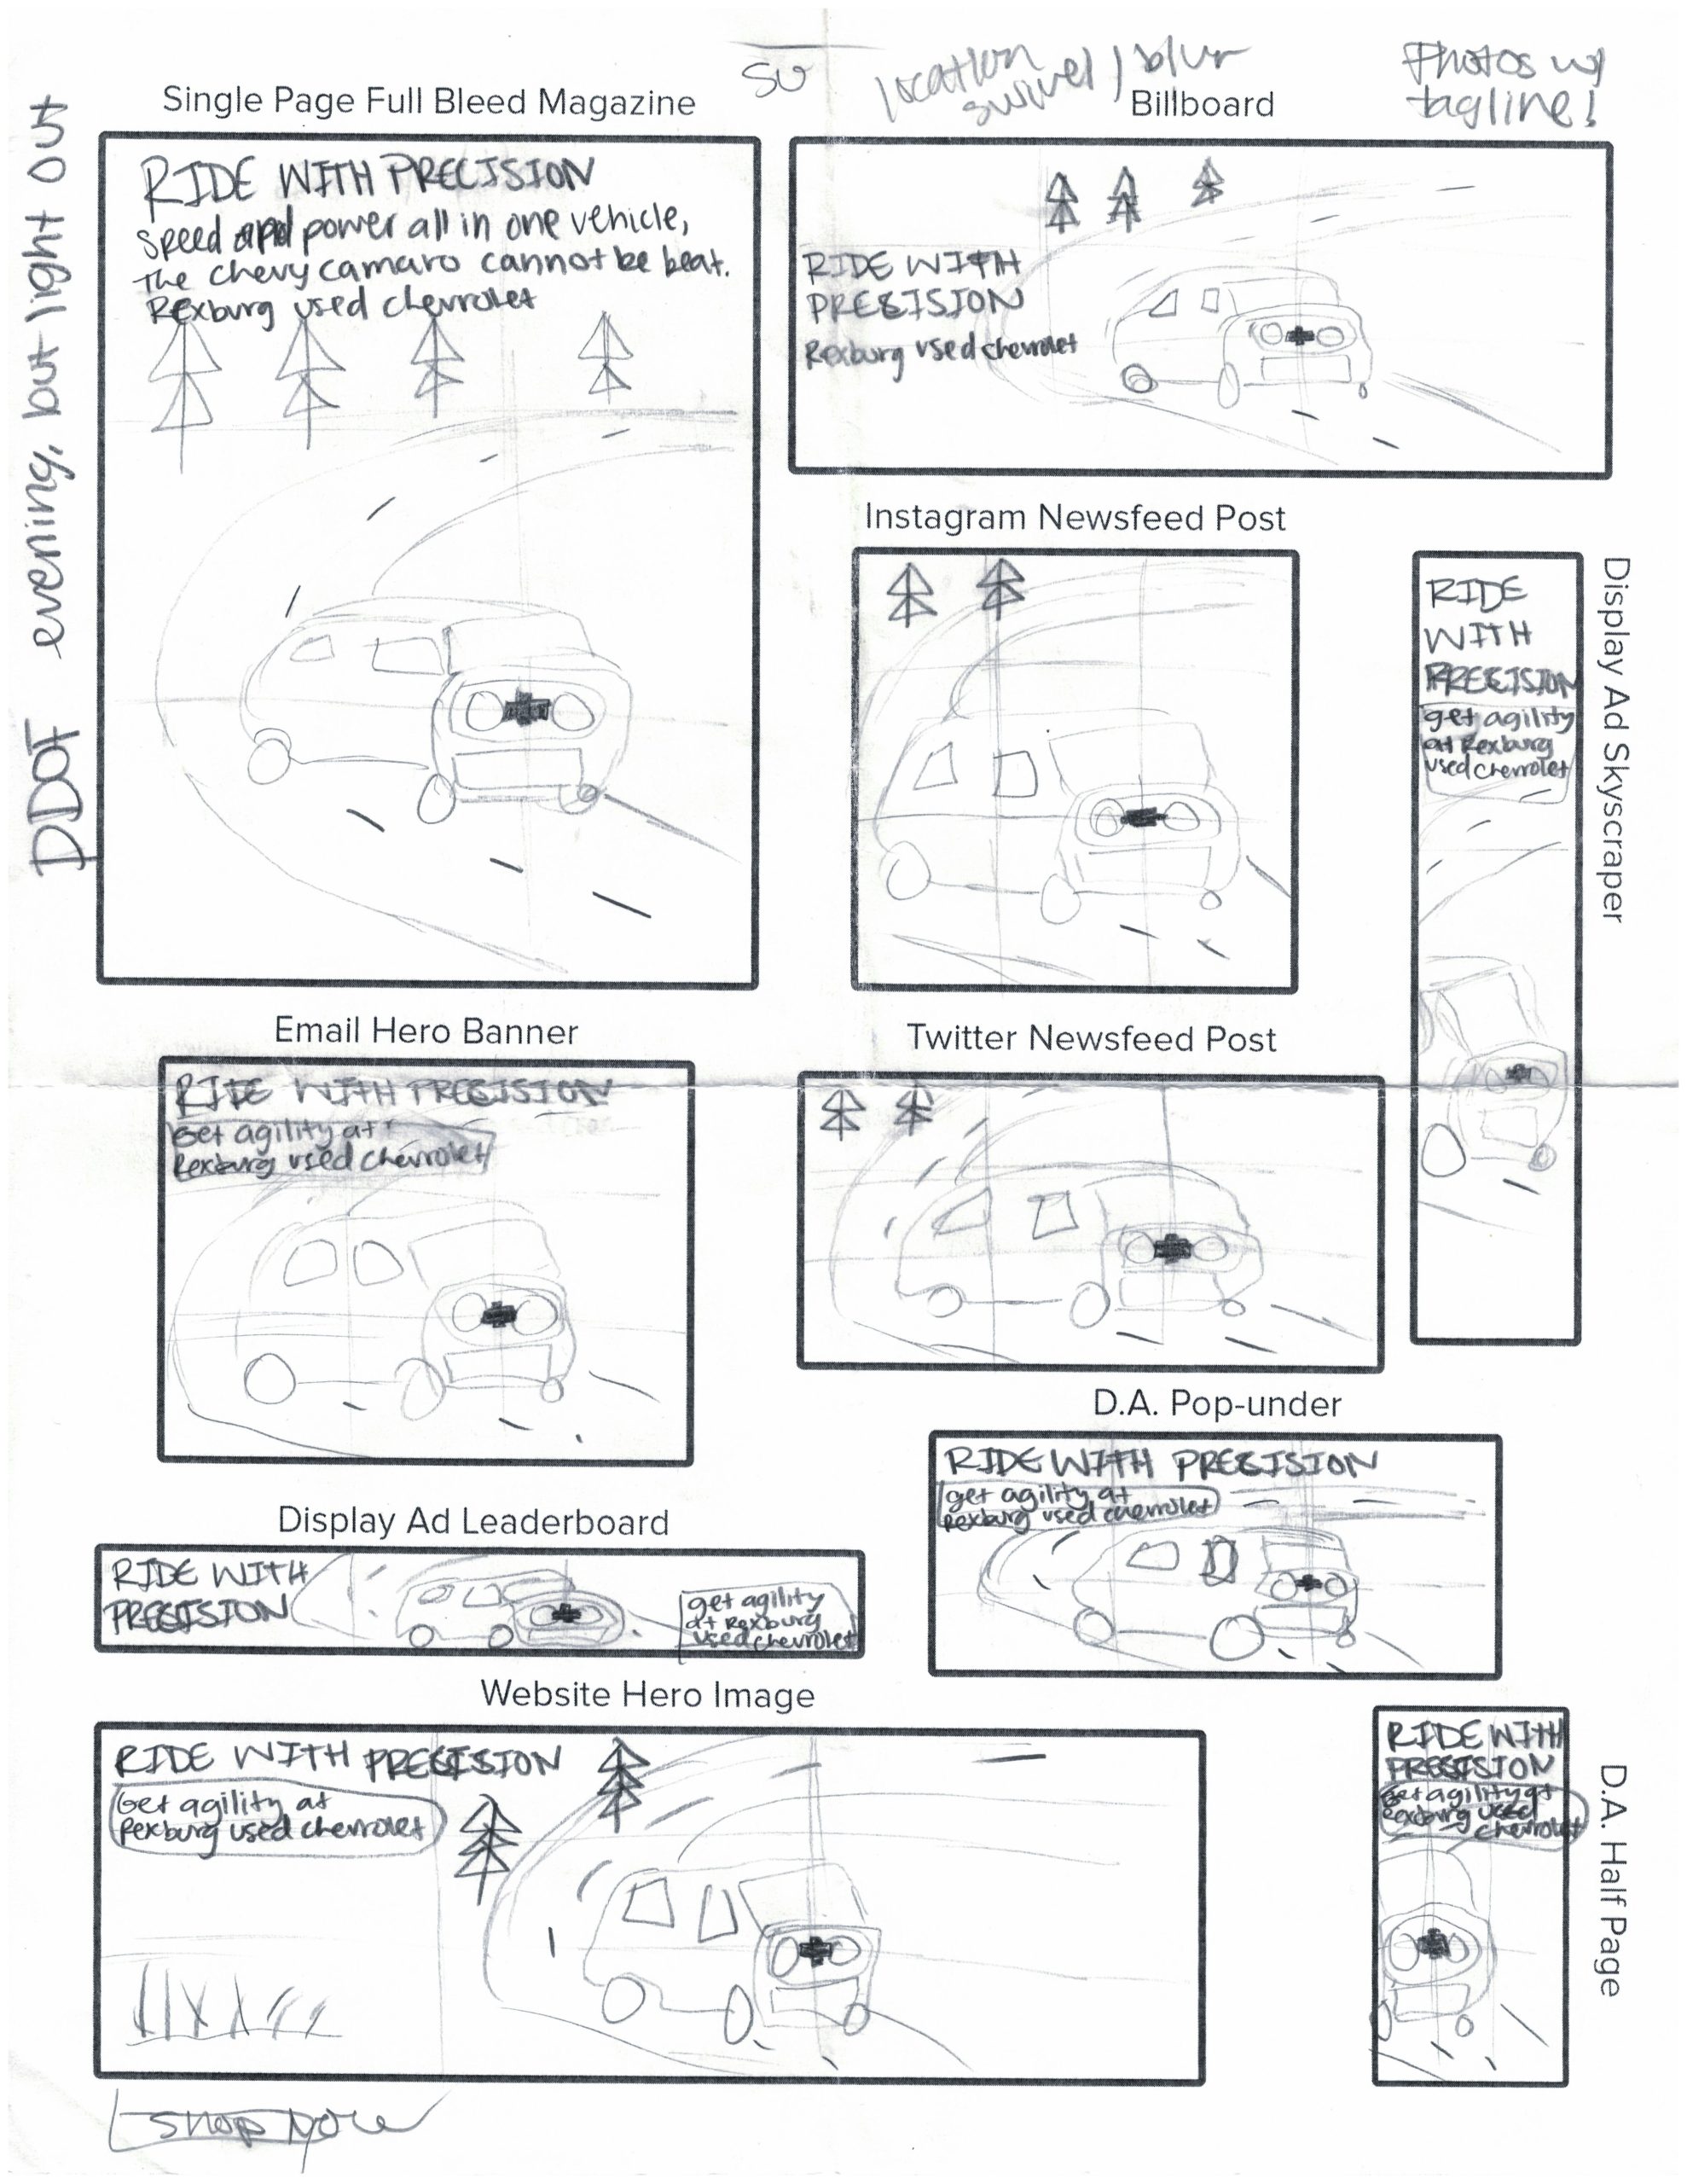 SU
location
swivel / blur
Photos w/
tagline!
evening, but light out
DDOT
Single Page Full Bleed Magazine
RIDE WITH PRECISION
Speed and power all in one vehicle,
The chevy camaro cannot be beat.
Rexburg used chevrolet
Billboard
RIDE WITH
PRECISION
Rexburg used chevrolet
Instagram Newsfeed Post
Display Ad Skyscraper
RIDE
WITH
PRECISION
get agility
at Rexburg
used chevrolet
Email Hero Banner
RIDE WITH PRECISION
Get agility at
Rexburg used chevrolet
Twitter Newsfeed Post
D.A. Pop-under
RIDE WITH PRECISION
get agility at
Rexburg used chevrolet
Display Ad Leaderboard
RIDE WITH
PRECISION
get agility
at Rexburg
used chevrolet
Website Hero Image
RIDE WITH PRECISION
Get agility at
Rexburg used chevrolet
D.A. Half Page
RIDE WITH
PRECISION
Get agility at
Rexburg used
chevrolet
Shop Now